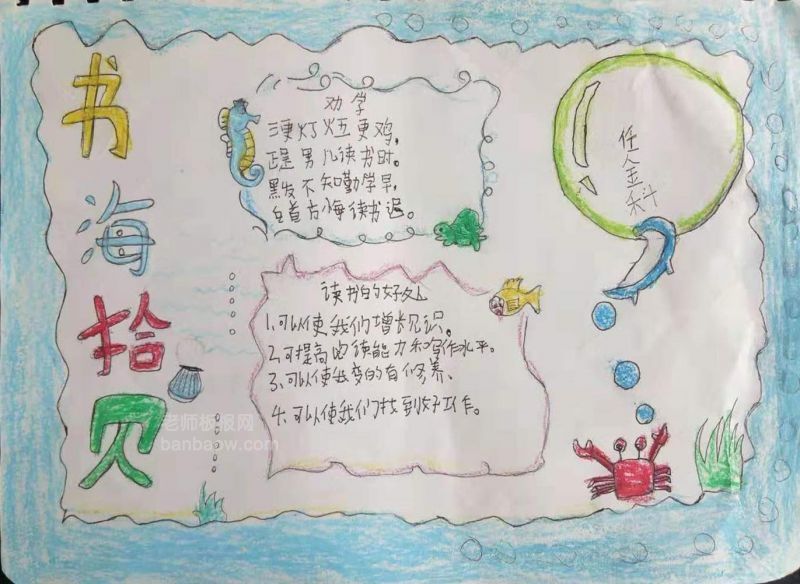 书海拾贝
劝学
三更灯火五更鸡,
正是男儿读书时。
黑发不知勤学早,
白首方悔读书迟。
任人金科
读书的好处
1.可以使我们增长见识。
2.可提高阅读能力和写作水平。
3.可以使我变的有修养、
4.可以使我们找到好工作。
老师板报网
banbaow.com